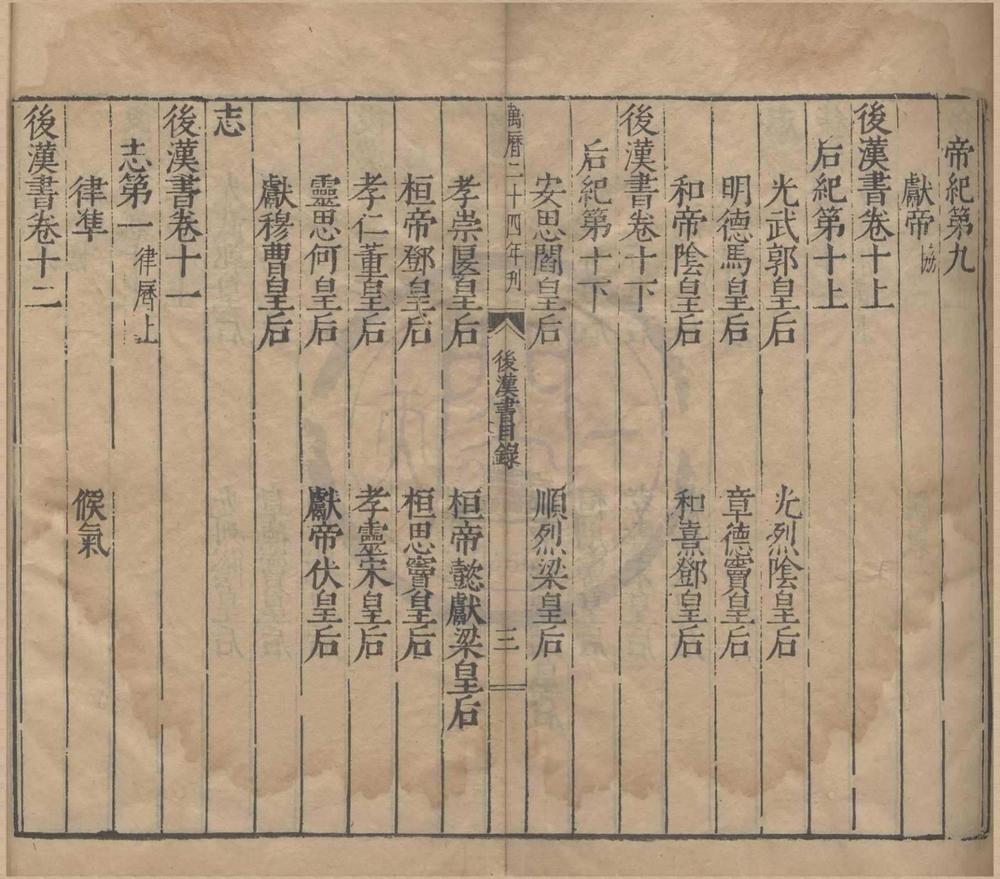 帝紀第九
獻帝協
後漢書卷十上
后紀第十上
光武郭皇后 光烈陰皇后
明德馬皇后 章德竇皇后
和帝陰皇后 和熹鄧皇后
後漢書卷十下
后紀第十下
安思閻皇后 順烈梁皇后
萬曆二十四年刊 後漢書目錄 三
孝崇匽皇后 桓帝懿獻梁皇后
桓帝鄧皇后 桓思竇皇后
孝仁董皇后 孝靈宋皇后
靈思何皇后 獻帝伏皇后
獻穆曹皇后
志
後漢書卷十一
志第一 律曆上
律準 候氣
後漢書卷十二